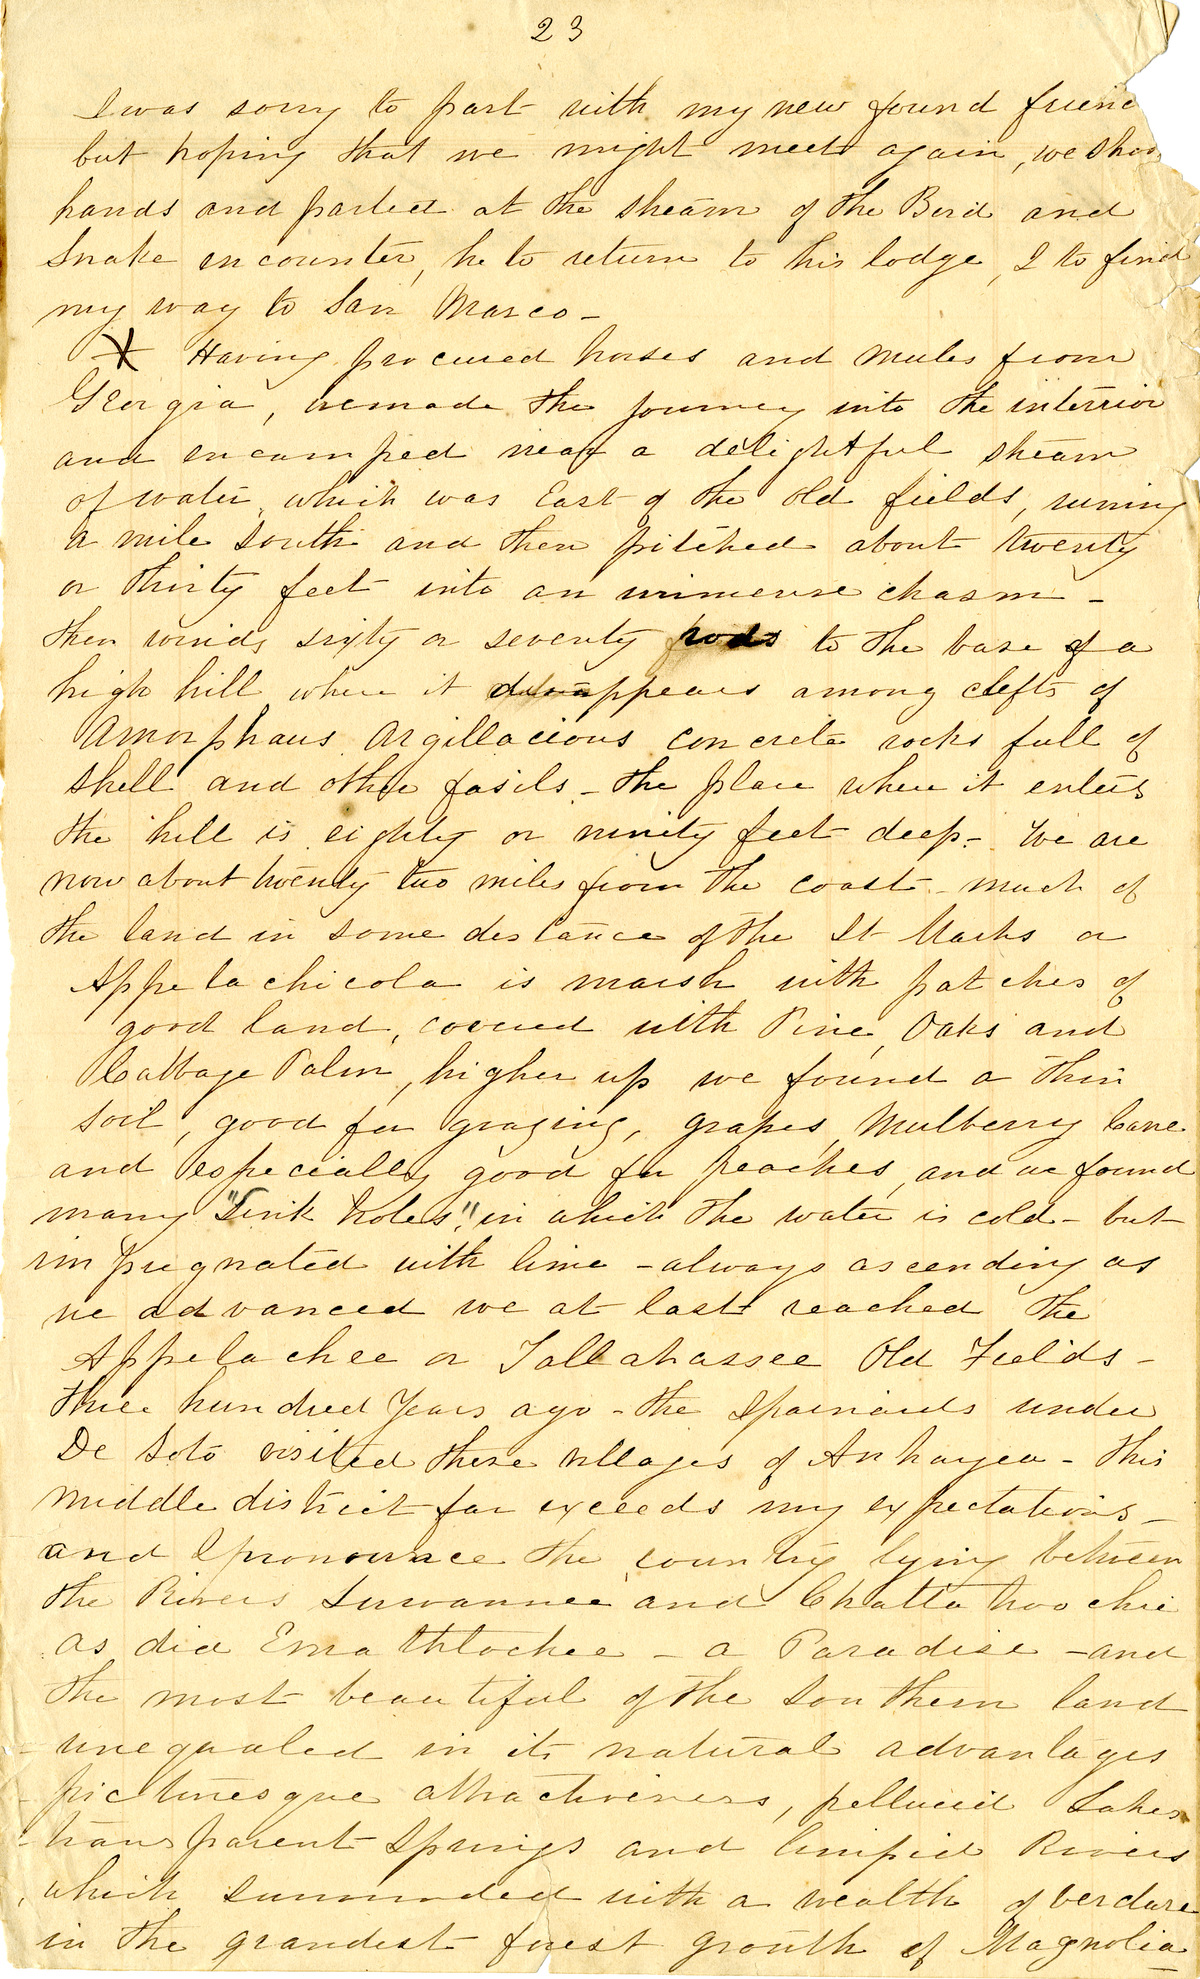 23
I was sorry to part with my new found friend
but hoping that we might meet again, we shoo
hands and parted at the stream of the Bird and
Snake encounter, he to return to his lodge, I to find
my way to San Marco -
Having procured horses and mules from
Georgia, we made the journey into the interrior
and encamped near a delightful stream
of water, which was East of the old fields, runing
a mile south and then pitched about twenty
or thirty feet into an immense chasm -
then winds sixty or seventy rods to the base of a
high hill where it disappears among clefts of
Amorphous Argillacious concrete rocks full of
shell and other fosils - the place where it enters
the hill is eighty or ninity feet deep - We are
now about twenty two miles from the coast - much of
the land in some distance of the St Marks or
Appelachicola is marsh with patches of
good land, covered with Pine, Oaks and
Cabbage Palm, higher up we found a thin
soil, good for grazing, grapes, Mulberry Cane
and especially good for peaches, and we found
many "Sink Holes", in which the water is cold - but
impregnated with lime - always ascending as
we advanced we at last reached the
Appelachee or Tallahassee Old Fields -
three hundred Years ago - the Spainards under
De Soto visited these villages of Anhayea - this
middle district far exceeds my expectations -
and I pronounce the country lying between
the Rivers Suwannee and Chattahoochie
as did Emathlochee - a Paradise - and
the most beautiful of the Southern land
unequaled in its natural advantages
picturesque attractiveness, pellucid Lakes
transparent Springs and limpid Rivers
which surrounded with a wealth of verdure
in the grandest forest growth of Magnolia